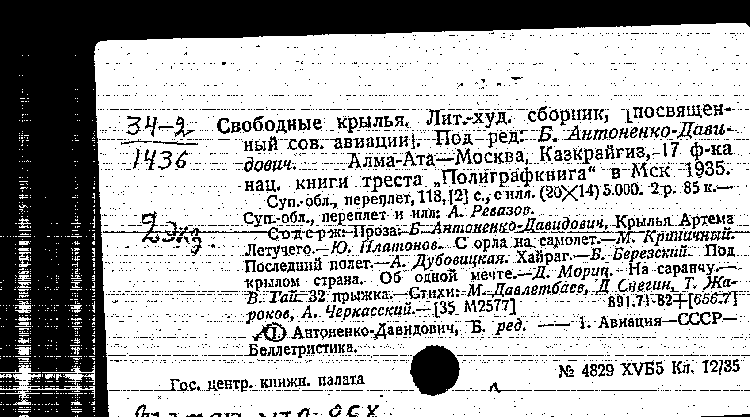 34-2
1436
2 экз.
Свободные крылья. Лит.-худ. сборник, [посвящен-
ный сов. авиации]. Под ред: Б. Антоненко-Дави-
дович. Алма-Ата—Москва, Казкрайгиз, 17 ф-ка
нац. книги треста „Полиграфкнига“ в Мск 1935.
Суп.-обл., переплет, 118, [2] с., с илл. (20×14) 5.000. 2 р. 85 к.—
Суп.-обл., переплет и илл: А. Ревазов.
Содерж: Проза: Б. Антоненко-Давидович, Крылья Артема
Летучего.—Ю. Платонов. С орла на самолет.—М. Криничный.
Последний полет.—А. Дубовицкая. Хайраг.—Б. Березский. Под
крылом страна. Об одной мечте.—Д. Мориц. На саранчу.—
В. Тай. 32 прыжка.—Стихи: М. Давлетбаев, Д. Снегин, Т. Жа-
роков, А. Черкасский.—[35 М2577] 891.71-82+[656.7]
① Антоненко-Давидович, Б. ред. —— 1. Авиация—СССР—
Беллетристика.
№ 4829 XVБ5 Кл. 12/35
Гос. центр. книжн. палата